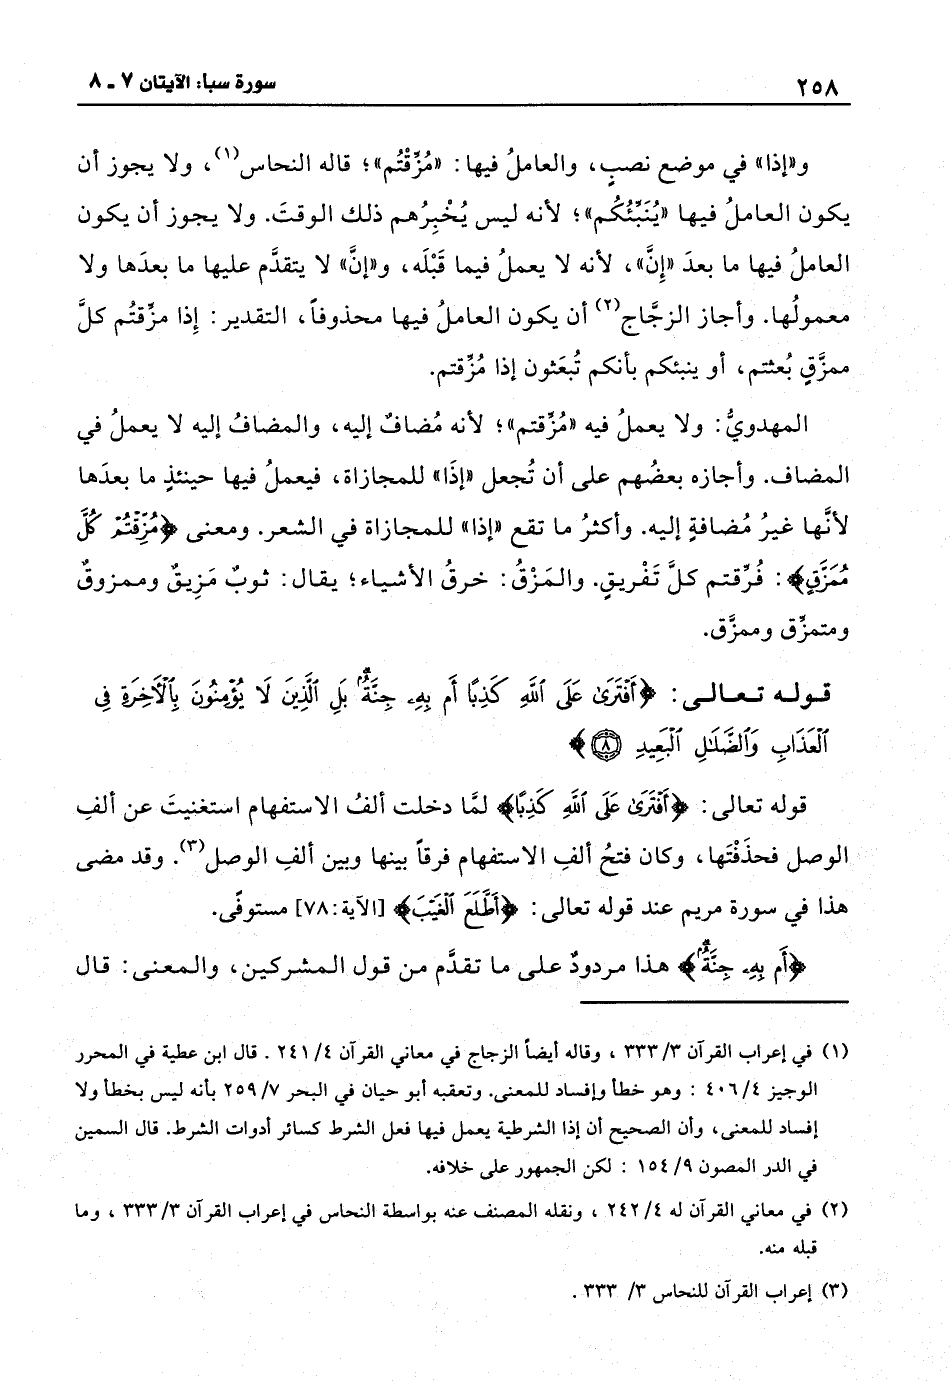 ٢٥٨ سورة سبأ: الآيتان ٧ ـ ٨
و«إذا» في موضع نصبٍ، والعاملُ فيها: «مُزِّقْتُم»؛ قاله النحاس(١)، ولا يجوز أن
يكون العاملُ فيها «يُنَبِّئُكُم»؛ لأنه ليس يُخْبِرُهم ذلك الوقتَ. ولا يجوز أن يكون
العاملُ فيها ما بعدَ «إِنَّ»، لأنه لا يعملُ فيما قَبْلَه، و«إنَّ» لا يتقدَّم عليها ما بعدَها ولا
معمولُها. وأجاز الزجَّاج(٢) أن يكون العاملُ فيها محذوفاً، التقدير: إذا مزِّقتُم كلَّ
ممزَّقٍ بُعثتم، أو ينبئكم بأنكم تُبعَثون إذا مُزِّقتم.
المهدويُّ: ولا يعملُ فيه «مُزِّقتم»؛ لأنه مُضافٌ إليه، والمضافُ إليه لا يعملُ في
المضاف. وأجازه بعضُهم على أن تُجعل «إذَا» للمجازاة، فيعملُ فيها حينئذٍ ما بعدَها
لأنَّها غيرُ مُضافةٍ إليه. وأكثرُ ما تقع «إذا» للمجازاة في الشعر. ومعنى ﴿مُزِّقْتُمْ كُلَّ
مُمَزَّقٍ﴾: فُرِّقتم كلَّ تَفْريقٍ. والمَزْقُ: خرقُ الأشياء؛ يقال: ثوبٌ مَزِيقٌ وممزوقٌ
ومتمزِّق وممزَّق.
قوله تعالى: ﴿أَفْتَرَىٰ عَلَى ٱللَّهِ كَذِبًا أَم بِهِۦ جِنَّةٌۢ ۗ بَلِ ٱلَّذِينَ لَا يُؤْمِنُونَ بِٱلْأَخِرَةِ فِى
ٱلْعَذَابِ وَٱلضَّلَـٰلِ ٱلْبَعِيدِ ٨﴾
قوله تعالى: ﴿أَفْتَرَىٰ عَلَى ٱللَّهِ كَذِبًا﴾ لمَّا دخلت ألفُ الاستفهام استغنيتَ عن ألفِ
الوصل فحذَفْتَها، وكان فتحُ ألفِ الاستفهام فرقاً بينها وبين ألفِ الوصل(٣). وقد مضى
هذا في سورة مريم عند قوله تعالى: ﴿أَطَّلَعَ ٱلْغَيْبَ﴾ [الآية:٧٨] مستوفًى.
﴿أَم بِهِۦ جِنَّةٌۢ ۗ﴾ هذا مردودٌ على ما تقدَّم من قول المشركين، والمعنى: قال
(١) في إعراب القرآن ٣/ ٣٣٣ ، وقاله أيضاً الزجاج في معاني القرآن ٤/ ٢٤١ . قال ابن عطية في المحرر
الوجيز ٤/ ٤٠٦ : وهو خطأ وإفساد للمعنى. وتعقبه أبو حيان في البحر ٧/ ٢٥٩ بأنه ليس بخطأ ولا
إفساد للمعنى، وأن الصحيح أن إذا الشرطية يعمل فيها فعل الشرط كسائر أدوات الشرط. قال السمين
في الدر المصون ٩/ ١٥٤ : لكن الجمهور على خلافه.
(٢) في معاني القرآن له ٤/ ٢٤٢ ، ونقله المصنف عنه بواسطة النحاس في إعراب القرآن ٣/ ٣٣٣ ، وما
قبله منه.
(٣) إعراب القرآن للنحاس ٣/ ٣٣٣ .